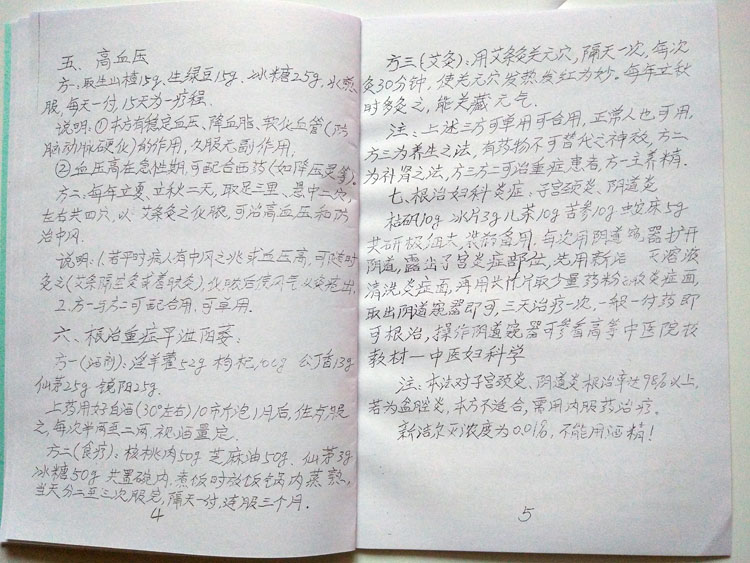 五、高血压
方一:取生山楂15g.生绿豆15g.冰糖25g,水煎
服,每天一付,15天为一疗程.
说明:①本方有稳定血压、降血脂、软化血管(防
脑动脉硬化)的作用,久服无副作用.
②血压高在急性期,可配合西药(如降压灵等).
方二:每年立夏、立秋二天,取足三里、悬中二穴,
左右共四穴,以艾条灸之化脓,可治高血压和防
治中风.
说明:1.若平时病人有中风之兆或血压高,可随时
灸之(艾条隔兰灸或着肤灸),化脓后使风气从灸疮出.
2.方一与方二可配合用,可单用.
六、根治重症早泄阳萎:
方一(酒剂):淫羊藿52g 枸杞100g 公丁香13g
仙茅25g 锁阳25g.
上药用好白酒(30°左右)10市斤泡1月后,住点服
之,每次半两至二两,视酒量定.
方二(食疗):核桃肉50g 芝麻油50g.仙茅3g
冰糖50g 共置碗内.煮饭时放饭锅内蒸熟,
当天分二至三次服完,隔天一付,连服三个月.
4
方三(艾灸):用艾条灸关元穴,隔天一次,每次
灸30分钟,使关元穴发热发红为妙.每年立秋
时多灸之,能关藏元气.
注:上述三方可单用可合用,正常人也可用,
方三为养生之法,有药物不可替代之神效,方二
为补肾之法,方三方二可治重症患者,方一主养精.
七、根治妇科炎症、子宫颈炎、阴道炎
枯矾10g 冰片3g 儿茶10g 苦参10g 蛇床5g
共研极细末,装瓶备用.每次用阴道窥器扩开
阴道,露出子宫炎症部位,先用新洁 灭溶液
清洗炎症面,再用长竹片取少量药粉 炎症面,
取出阴道窥器即可,三天治疗一次,一般一付药即
可根治,操作阴道窥器可参看高等中医院校
教材一中医妇科学
注:本法对子宫颈炎、阴道炎根治率达98%以上,
若为盆腔炎,本方不适合,需用内服药治疗.
新洁尔灭浓度为0.01%,不能用酒精!
5